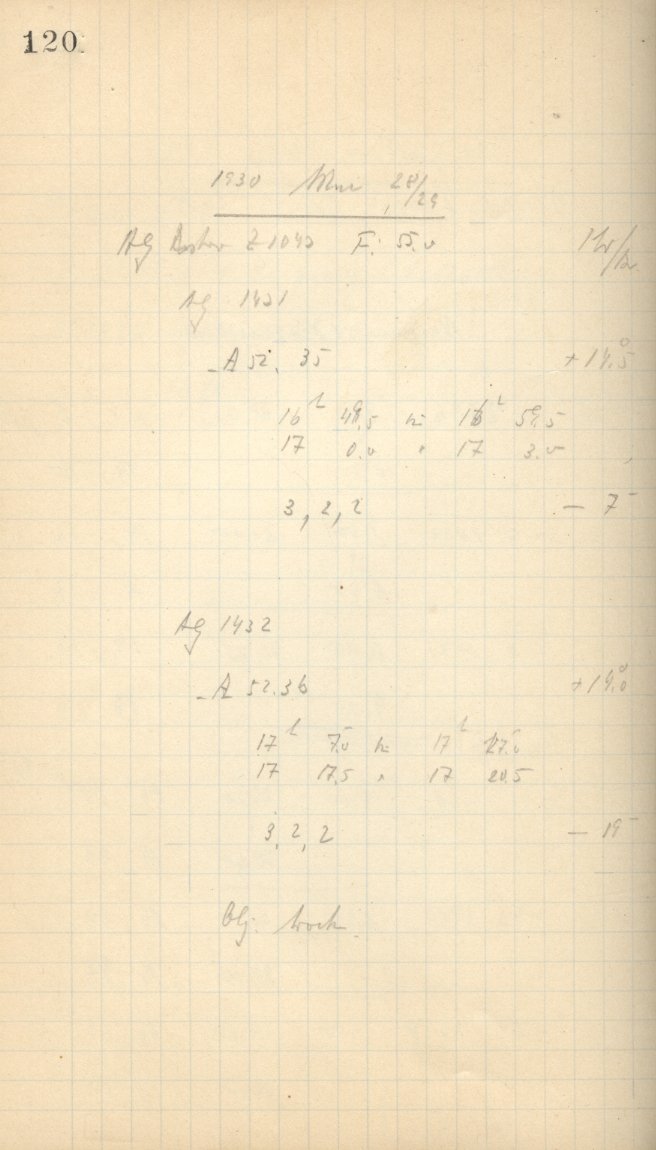 120.
1930 Mai 28/29
Ag Z 1043 F: 55.0
Ag 1431
A 52. 35 +14.5°
16 h 49.5 bis 16 h 59.5
17 0.0 " 17 3.0
3, 2, 2 — 7
Ag 1432
A 52.36 +14.0°
17 h 7.0 bis 17 h 27.0
17 17.5 " 17 20.5
3, 2, 2 — 19
Obj. trock.